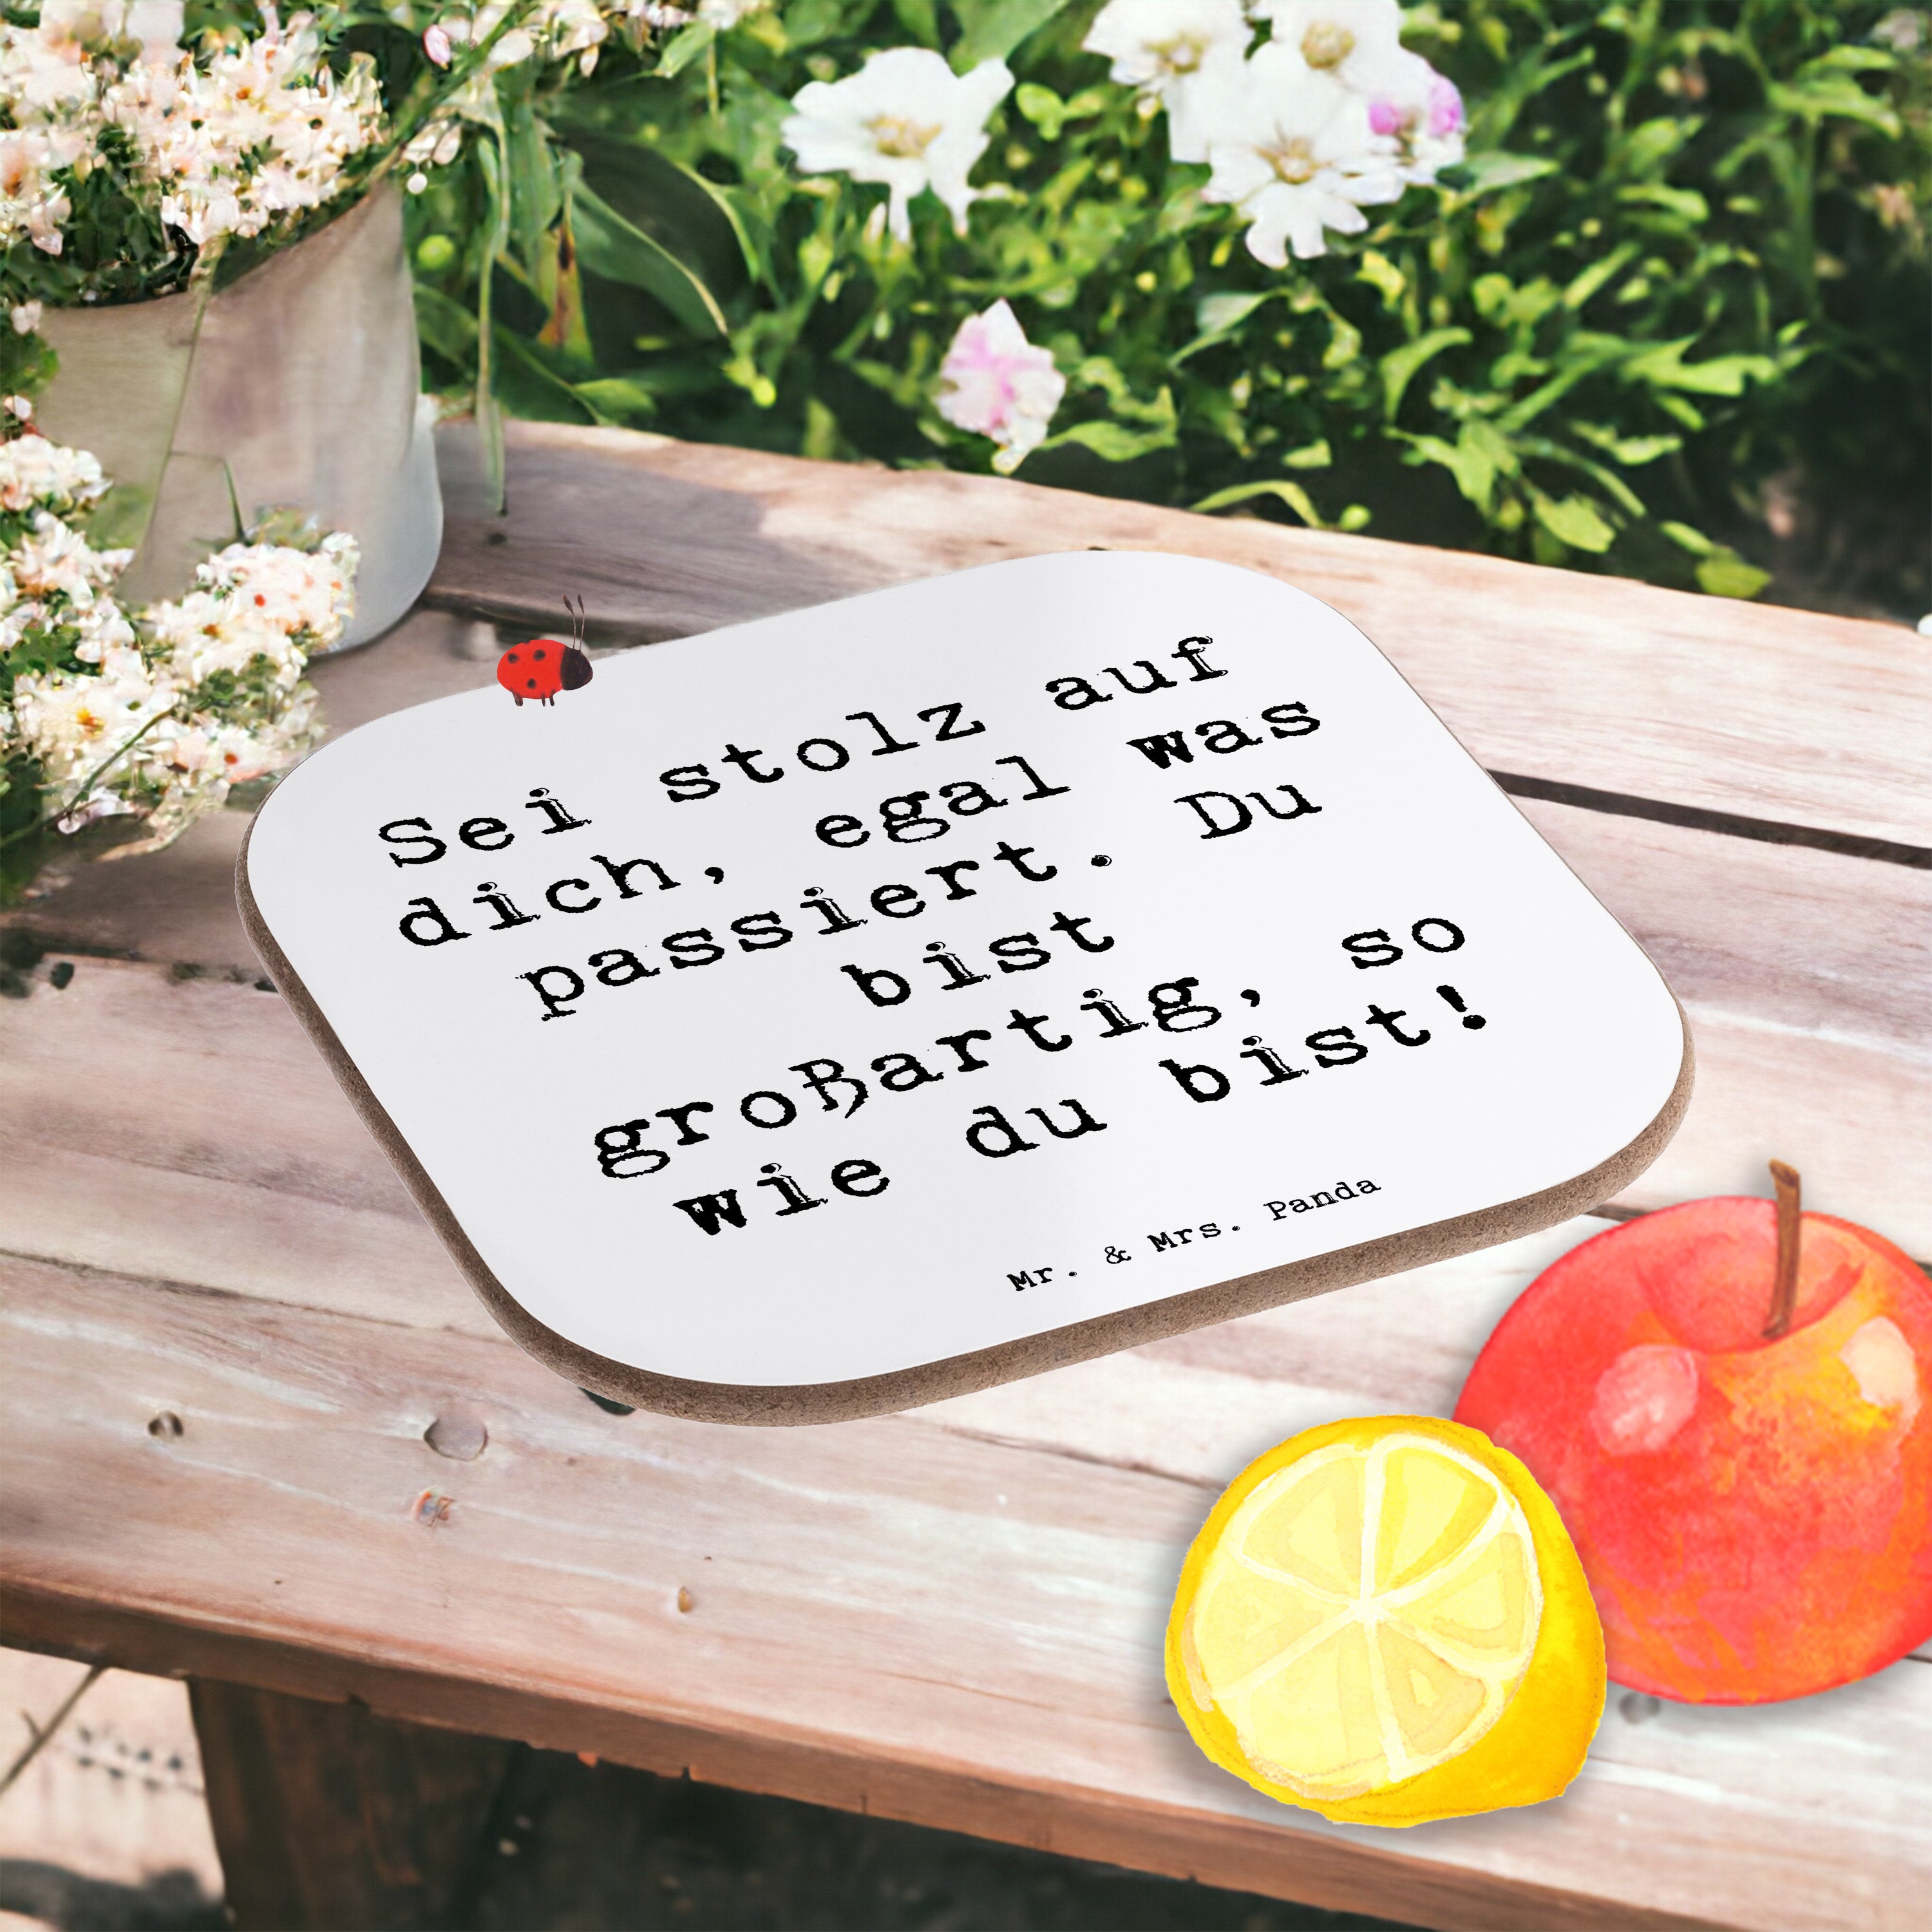 Sei stolz auf
dich, egal was
passiert. Du
bist
großartig, so
wie du bist!
Mr. & Mrs. Panda